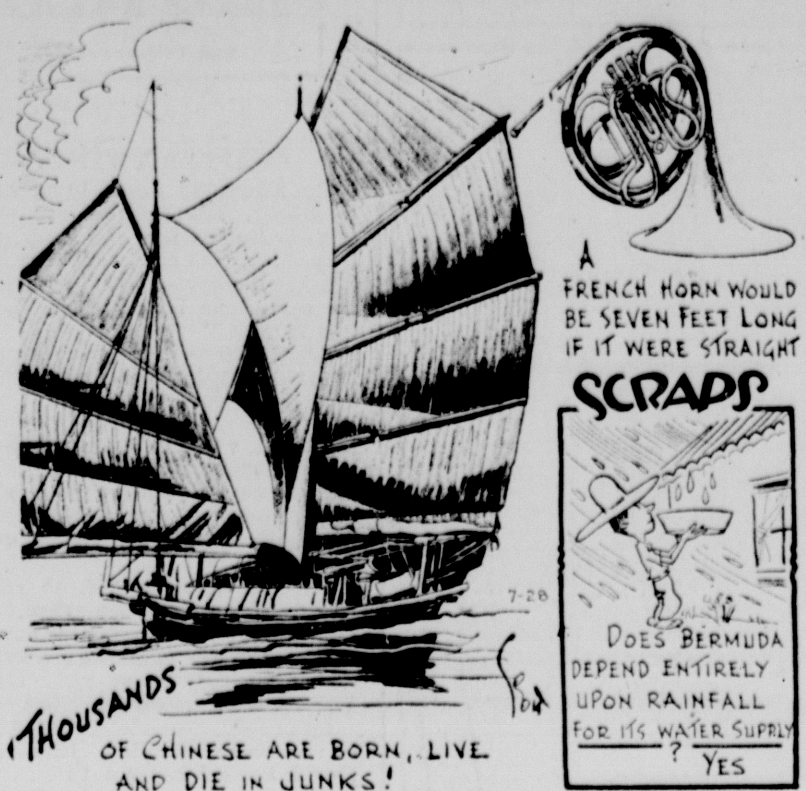 A
FRENCH HORN WOULD
BE SEVEN FEET LONG
IF IT WERE STRAIGHT
SCRAPS
DOES BERMUDA
DEPEND ENTIRELY
UPON RAINFALL
FOR ITS WATER SUPPLY
?
YES
7-28
THOUSANDS
OF CHINESE ARE BORN, LIVE
AND DIE IN JUNKS!